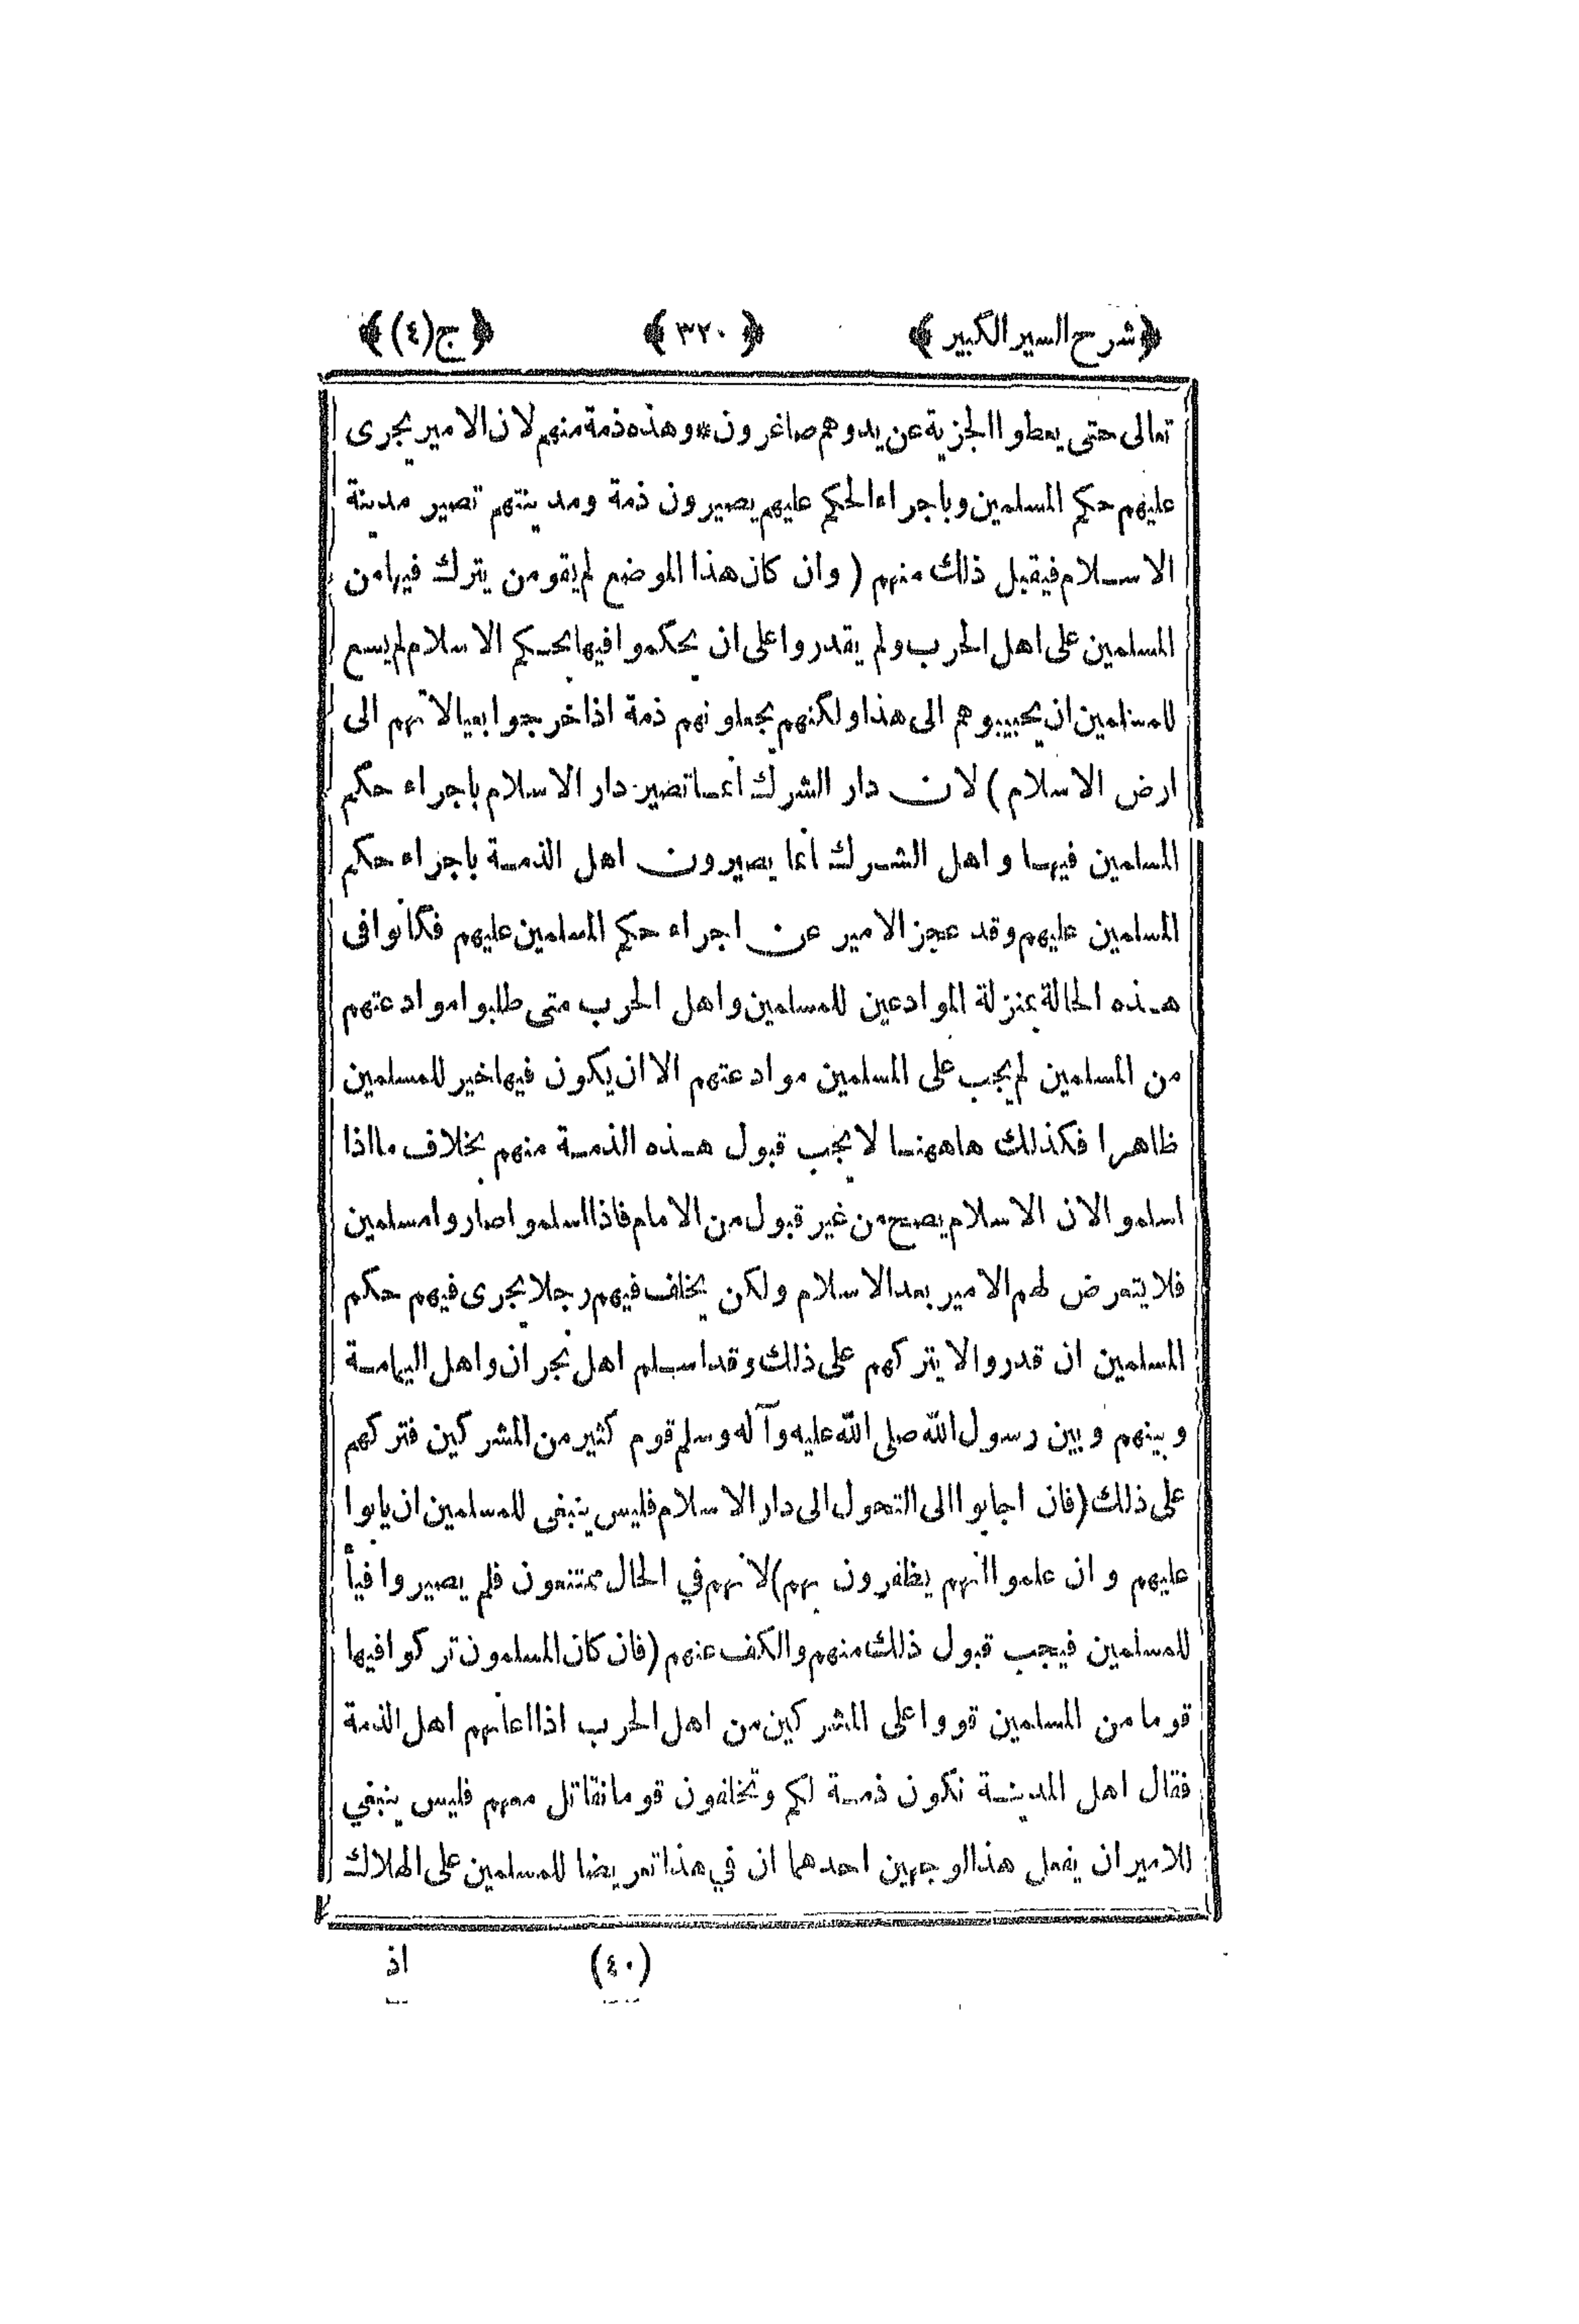 ﴿شرح السير الكبير﴾ ﴿٣٢٠﴾ ﴿ج(٤)﴾
تعالى حتى يعطوا الجزية عن يد وهم صاغرون * وهذه ذمة منهم لان الامير يجرى
عليهم حكم المسلمين وباجراء الحكم عليهم يصيرون ذمة ومدينتهم تصير مدينة
الاسلام فيقبل ذلك منهم ( وان كان هذا الموضع لم يقو من يترك فيها من
المسلمين على اهل الحرب ولم يقدروا على ان يحكموا فيها بحكم الاسلام لم يسع
للمسلمين ان يجيبوهم الى هذا ولكنهم يجعلونهم ذمة اذا خرجوا بعيالاتهم الى
ارض الاسلام ) لان دار الشرك انما تصير دار الاسلام باجراء حكم
المسلمين فيها و اهل الشرك انما يصيرون اهل الذمة باجراء حكم
المسلمين عليهم وقد عجز الامير عن اجراء حكم المسلمين عليهم فكانوا فى
هذه الحالة بمنزلة الموادعين للمسلمين واهل الحرب متى طلبوا موادعتهم
من المسلمين لم يجب على المسلمين موادعتهم الا ان يكون فيها خير للمسلمين
ظاهرا فكذلك هاهنا لا يجب قبول هذه الذمة منهم بخلاف ما اذا
اسلموا لان الاسلام يصح من غير قبول من الامام فاذا اسلموا صاروا مسلمين
فلا يتعرض لهم الامير بعد الاسلام ولكن يخلف فيهم رجلا يجرى فيهم حكم
المسلمين ان قدر والا يتركهم على ذلك وقد اسلم اهل نجران واهل اليمامة
وبينهم وبين رسول الله صلى الله عليه وآله وسلم قوم كثير من المشركين فتركهم
على ذلك (فان اجابوا الى التحول الى دار الاسلام فليس ينبغى للمسلمين ان يابوا
عليهم وان علموا انهم يظفرون بهم) لانهم في الحال ممتنعون فلم يصيروا فيأ
للمسلمين فيجب قبول ذلك منهم والكف عنهم (فان كان المسلمون تركوا فيها
قوما من المسلمين قووا على المشركين من اهل الحرب اذا اعانهم اهل الذمة
فقال اهل المدينة نكون ذمة لكم وتخلفون قوما نقاتل معهم فليس ينبغي
للامير ان يفعل هذا لوجهين احدهما ان في هذا تعريضا للمسلمين على الهلاك
(٤٠) اذ